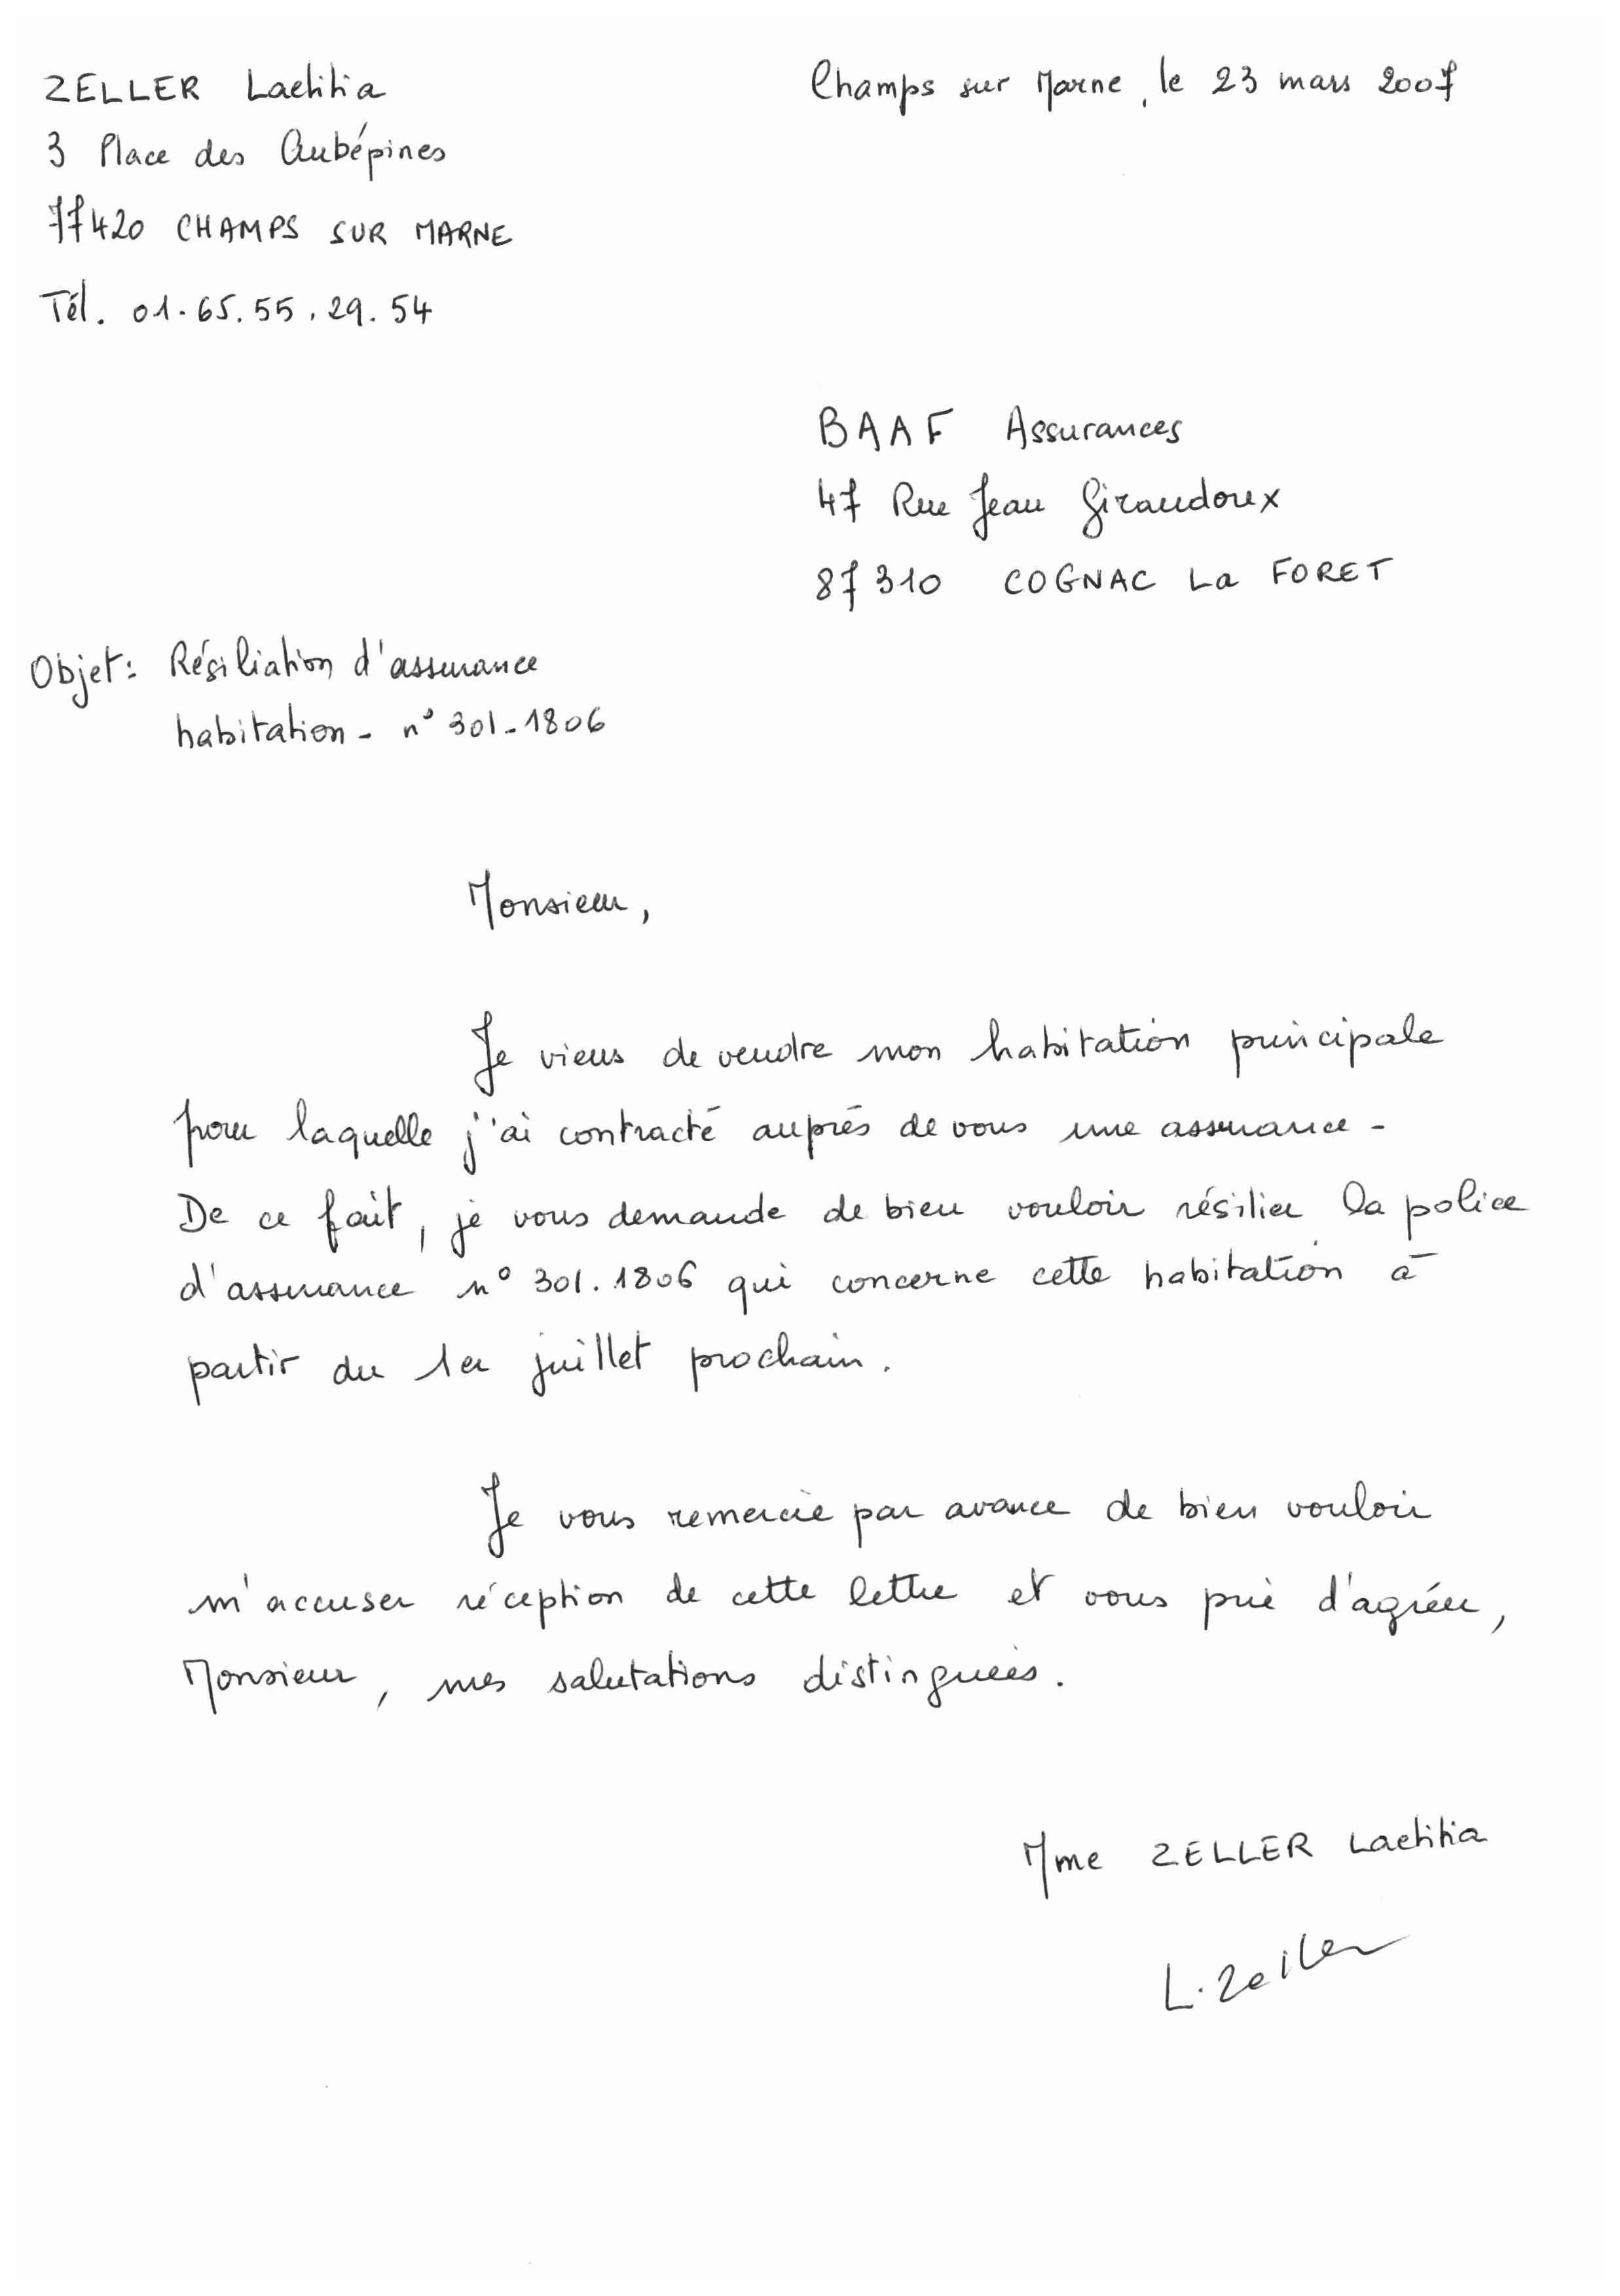 ZELLER Laetitia
Champs sur Marne, le 23 mars 2007
3 Place des Aubépines
77420 CHAMPS SUR MARNE
Tél. 01.65.55.29.54
BAAF Assurances
47 Rue Jean Giraudoux
87310 COGNAC La FORET
Objet: Résiliation d'assurance
habitation - n° 301-1806
Monsieur,
Je viens de vendre mon habitation principale
pour laquelle j'ai contracté auprès de vous une assurance -
De ce fait, je vous demande de bien vouloir résilier la police
d'assurance n° 301.1806 qui concerne cette habitation à
partir du 1er juillet prochain.
Je vous remercie par avance de bien vouloir
m'accuser réception de cette lettre et vous prie d'agréer,
Monsieur, mes salutations distinguées.
Mme ZELLER Laetitia
L. Zeller